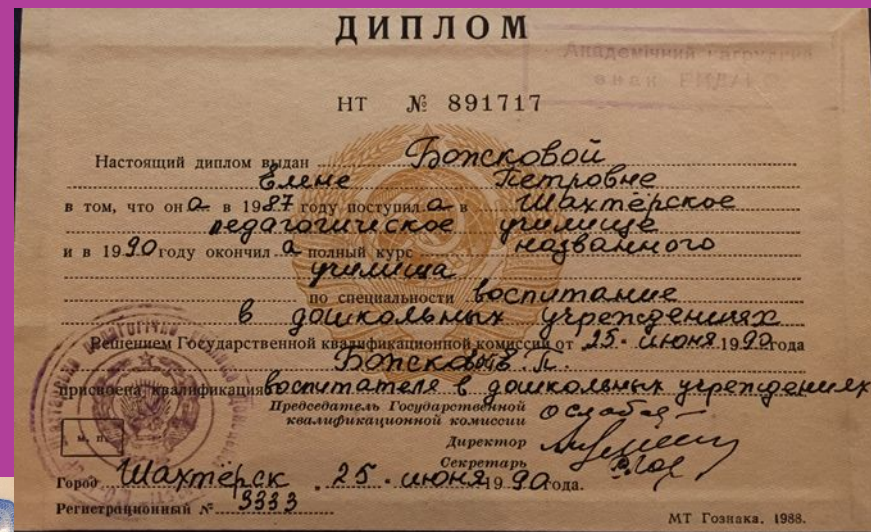 ДИПЛОМ
НТ № 891717
Настоящий диплом выдан Божсковой
Елене Петровне
в том, что она в 1987 году поступила в Шахтёрское
педагогическое училище
и в 1990 году окончила полный курс названного
училища
по специальности воспитание
в дошкольных учреждениях
Решением Государственной квалификационной комиссии от 25. июня 1990 года
Е. П.
присвоена квалификация воспитателя в дошкольных учреждениях
Председатель Государственной
квалификационной комиссии
Директор
Секретарь
М. П.
Город Шахтёрск, 25. июня 1990 года.
Регистрационный № 3333
МТ Гознака. 1988.